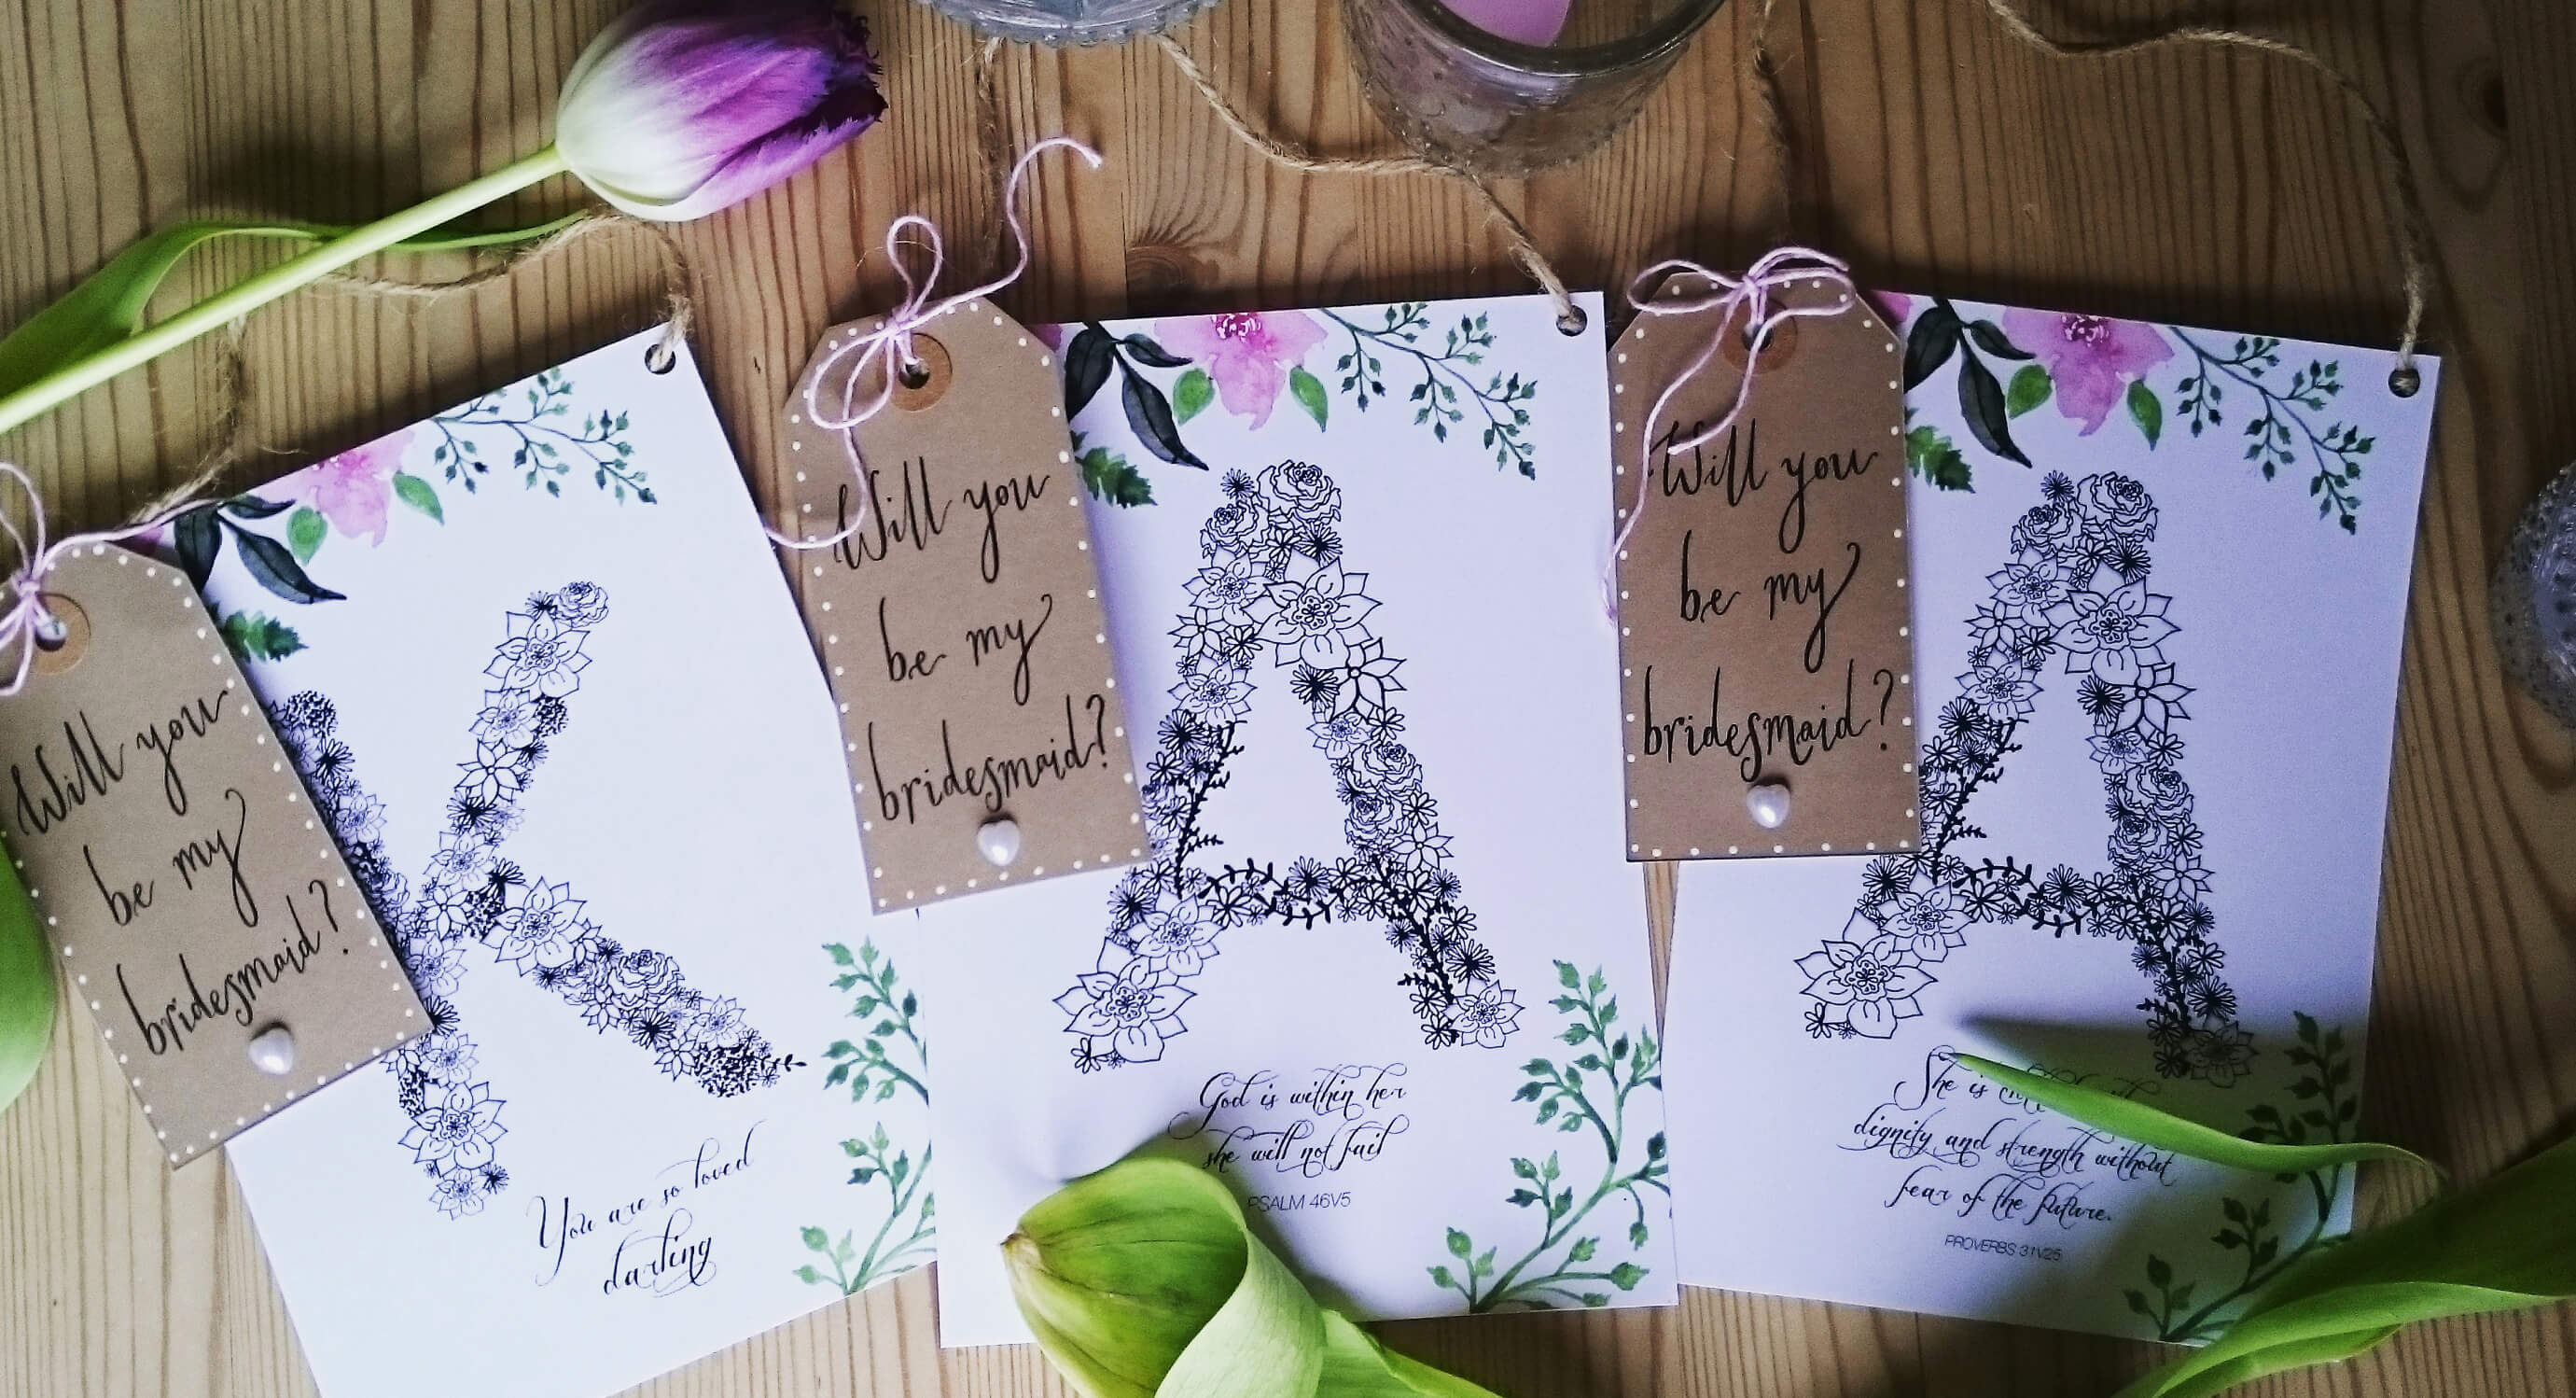 Will you
be my
bridesmaid?
K
You are so loved
darling
Will you
be my
bridesmaid?
A
God is within her
she will not fail
PSALM 46V5
Will you
be my
bridesmaid?
A
She is
dignity and strength without
fear of the future.
PROVERBS 31V25